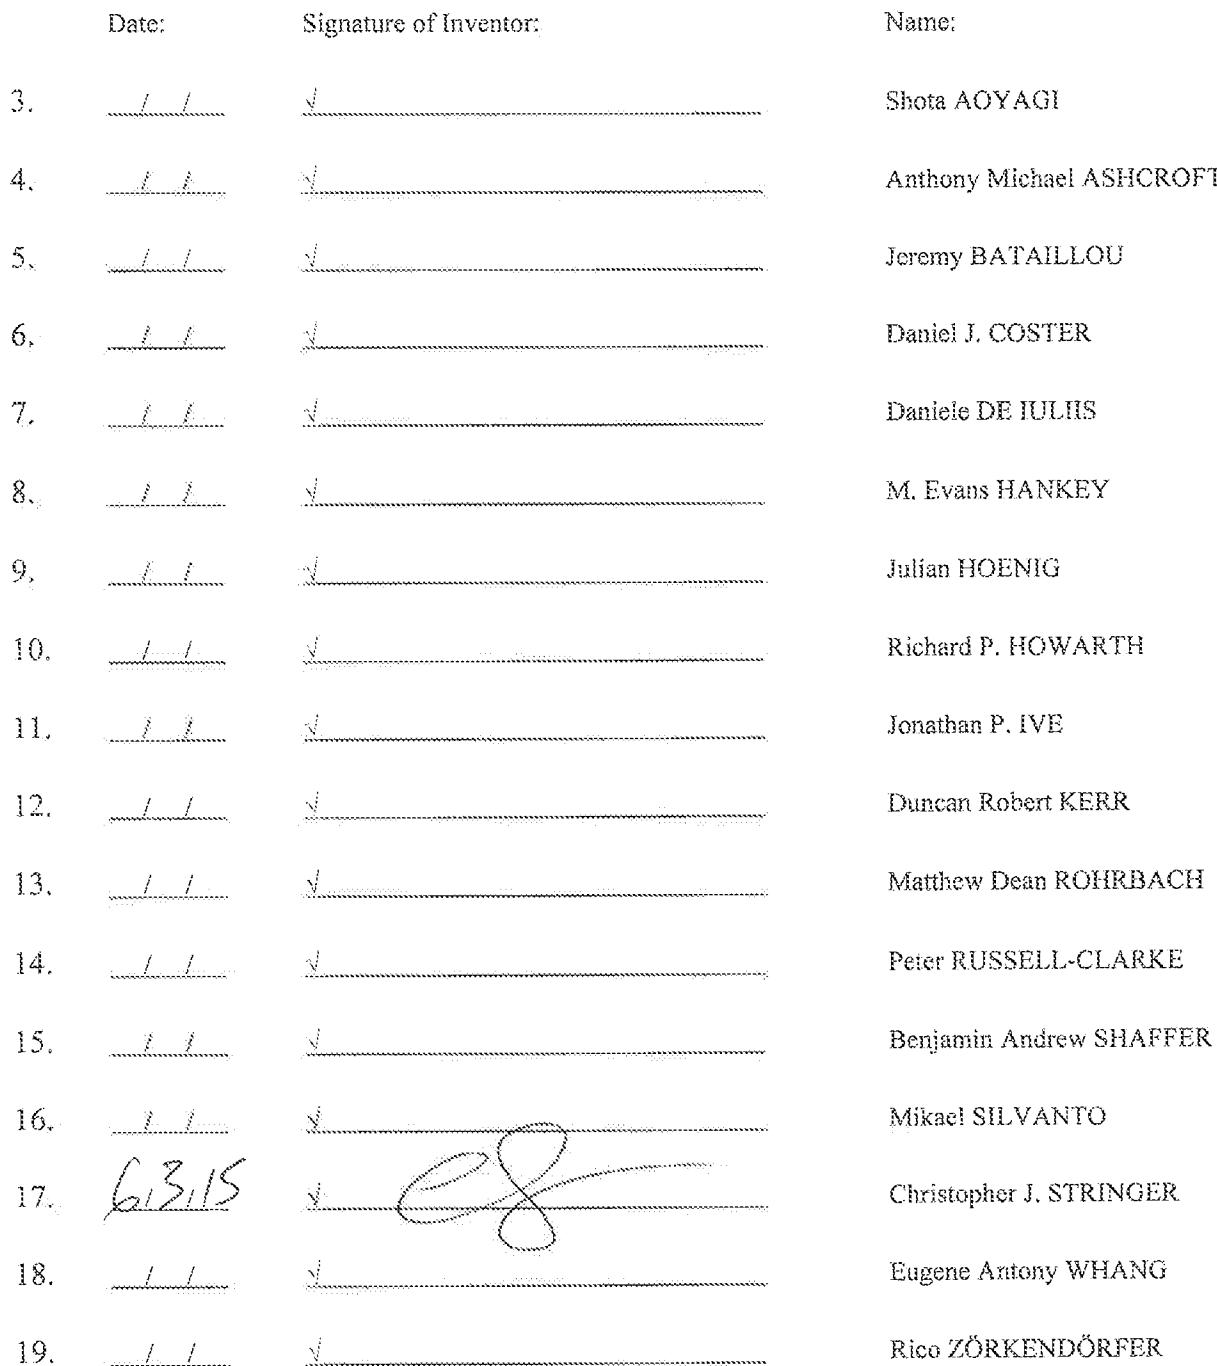 Date: Signature of Inventor: Name:
3. / / √ Shota AOYAGI
4. / / √ Anthony Michael ASHCROFT
5. / / √ Jeremy BATAILLOU
6. / / √ Daniel J. COSTER
7. / / √ Daniele DE IULIIS
8. / / √ M. Evans HANKEY
9. / / √ Julian HOENIG
10. / / √ Richard P. HOWARTH
11. / / √ Jonathan P. IVE
12. / / √ Duncan Robert KERR
13. / / √ Matthew Dean ROHRBACH
14. / / √ Peter RUSSELL-CLARKE
15. / / √ Benjamin Andrew SHAFFER
16. / / √ Mikael SILVANTO
17. 6/3/15 √ Christopher J. STRINGER
18. / / √ Eugene Antony WHANG
19. / / √ Rico ZÖRKENDÖRFER